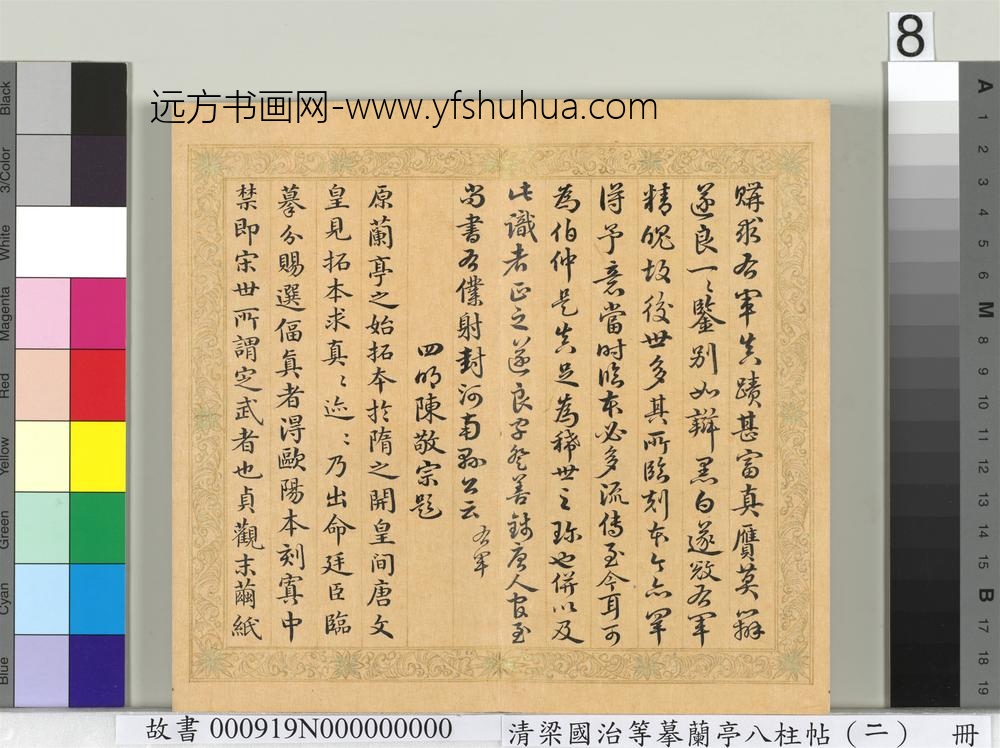 8
远方书画网-www.yfshuhua.com
購求右軍真蹟甚富真贋莫辯
遂良一〻鑒別如辯黑白遂右軍
精魄故後世多其所臨刻本今亦罕
得予意當時臨本必多流傳至今耳可
為伯仲是真足為稀世之珍也併以及
此識者正之遂良字登善錢唐人官至
尚書右僕射封河南縣公云 右軍
四明陳敬宗題
原蘭亭之始拓本於隋之開皇間唐文
皇見拓本求真〻迹〻乃出命廷臣臨
摹分賜選偪真者得歐陽本刻寘中
禁即宋世所謂定武者也貞觀末繭紙
Black
3/Color
White
Magenta
Red
Yellow
Green
Cyan
Blue
A
1
2
3
4
5
6
M
8
9
10
11
12
13
14
15
B
17
18
19
故書 000919N000000000
清梁國治等摹蘭亭八柱帖（二） 冊